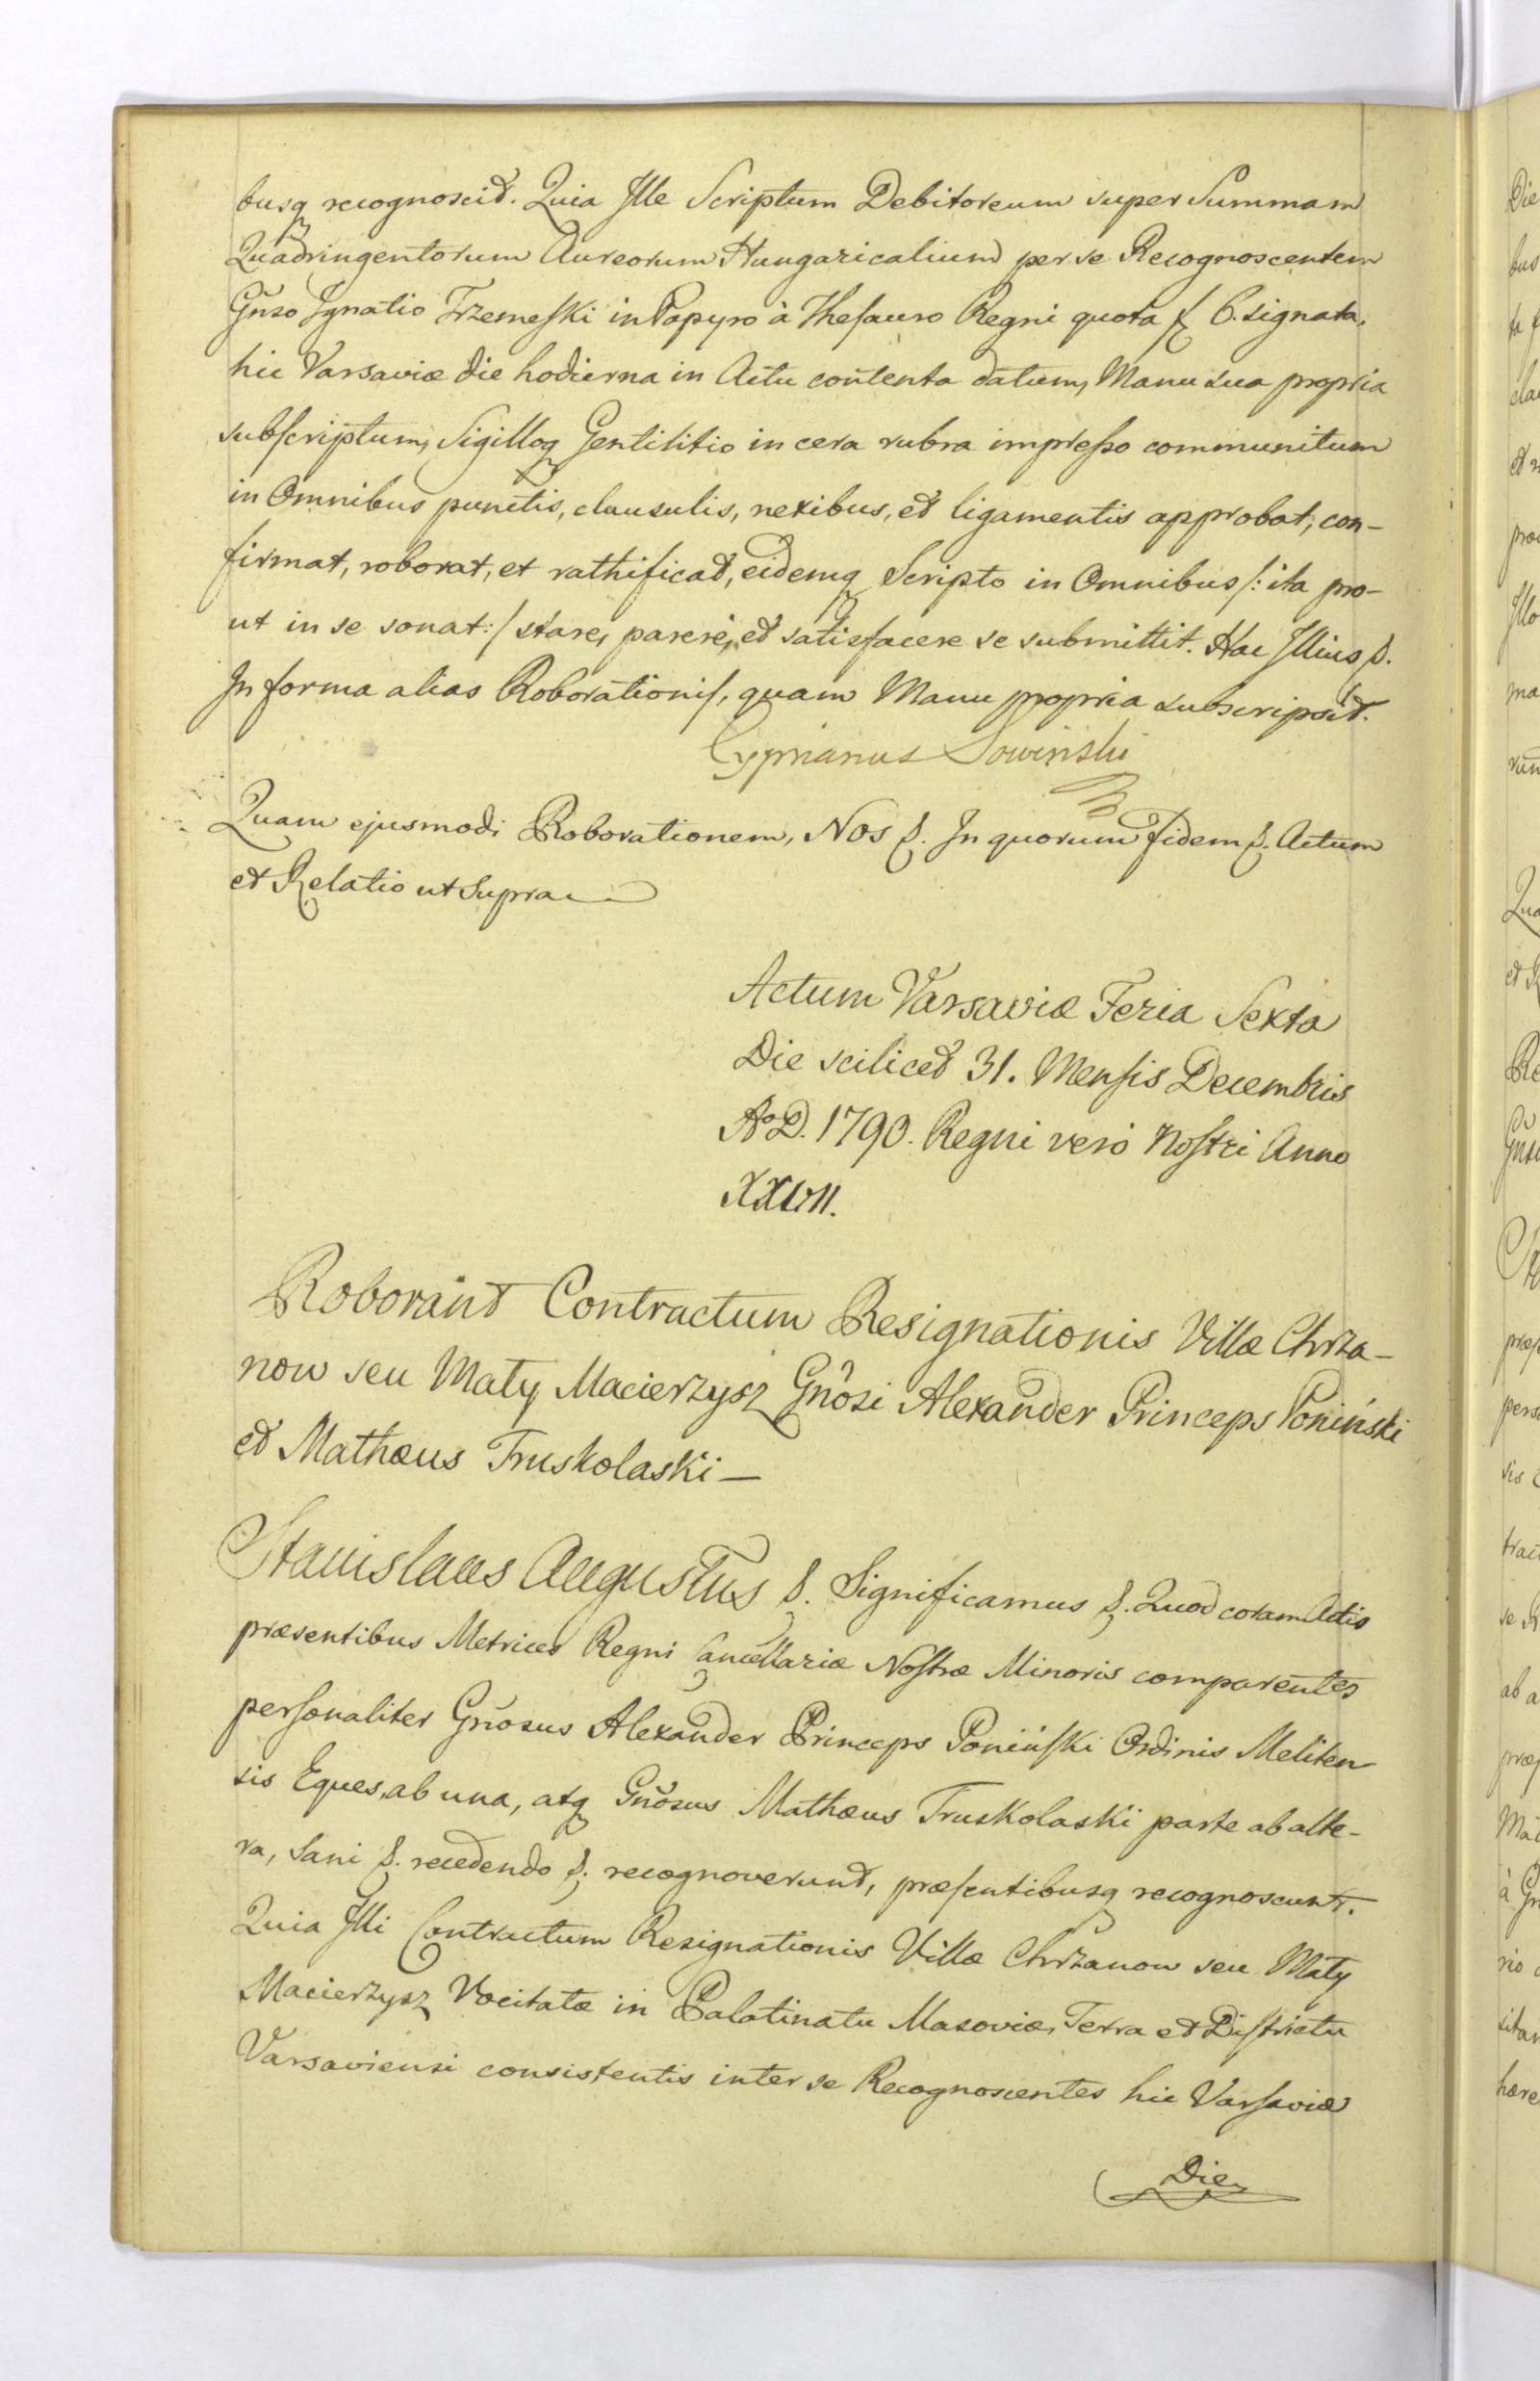 busq recognoscit. Quia Ille Scriptum Debitoreum super Summam
Quadringentorum Aureorum Hungaricalium per se Recognoscentem
Gñso Ignatio Trzemeski in Papyro à Thesauro Regni quota f 6. signata,
hic Varsaviæ die hodierna in Actu contenta datum, Manu sua propria
subscriptum, Sigilloq Gentilitio in cera rubra impresso communitum
in Omnibus punctis, clausulis, nexibus, et ligamentis approbat, con-
firmat, roborat, et rathificat, eidemq Scripto in Omnibus /: ita pro-
ut in se sonat :/ stare, parere, et satisfacere se submittit. Hac Illius p.
In forma alias Roborationis, quam Manu propria subscripsit.
Cyprianus Sowinski
Quam ejusmodi Roborationem, Nos p. In quorum fidem p. Actum
et Relatio ut Supra
Actum Varsaviæ Feria Sexta
Die scilicet 31. Mensis Decembris
A° D. 1790. Regni verò Nostri Anno
XXVII.
Roborant Contractum Resignationis Villæ Chrza-
now seu Maty Macierzysz Gñosi Alexander Princeps Poniński
et Mathæus Truskolaski —
Stanislaus Augustus p. Significamus p. Quod coram Actis
præsentibus Metrices Regni Cancellariæ Nostræ Minoris comparentes
personaliter Gñosus Alexander Princeps Poniński Ordinis Meliten
sis Eques, ab una, atq Gñosus Mathæus Truskolaski parte ab alte-
ra, Sani p. recedendo p. recognoverunt, præsentibusq recognoscunt.
Quia Illi Contractum Resignationis Villæ Chrzanow seu Maty
Macierzysz Vocitatæ in Palatinatu Masoviæ, Terra et Districtu
Varsaviensi consistentis inter se Recognoscentes hic Varsaviæ
Die